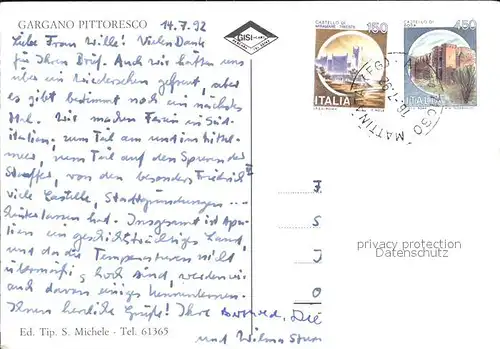 GARGANO PITTORESCO 14.7.92
GiSi
CASTELLO DI
MIRAMARE TRIESTE
150
ITALIA
450
ITALIA
MATTINATA (FG)
Liebe Frau Wille! Vielen Dank
für Ihren Brief. Auch wir hätten uns
über ein Wiedersehen gefreut, aber
es gibt bestimmt noch ein nächstes
Mal. Wir machen Ferien in Süd-
italien, zum Teil am und im Mittel-
meer, zum Teil auf den Spuren der
Staufer, von den besonders Friedrich II
viele Kastelle, Stadtgründungen ...
hinterlassen hat. Insgesamt ist Apu-
lien ein geschichtsträchtiges Land,
und da die Temperaturen nicht
übermäßig hoch sind, werden wir
auch davon einiges kennenlernen.
Ihnen herzliche Grüße! Ihre
und Wilma
privacy protection
Datenschutz
Ed. Tip. S. Michele - Tel. 61365